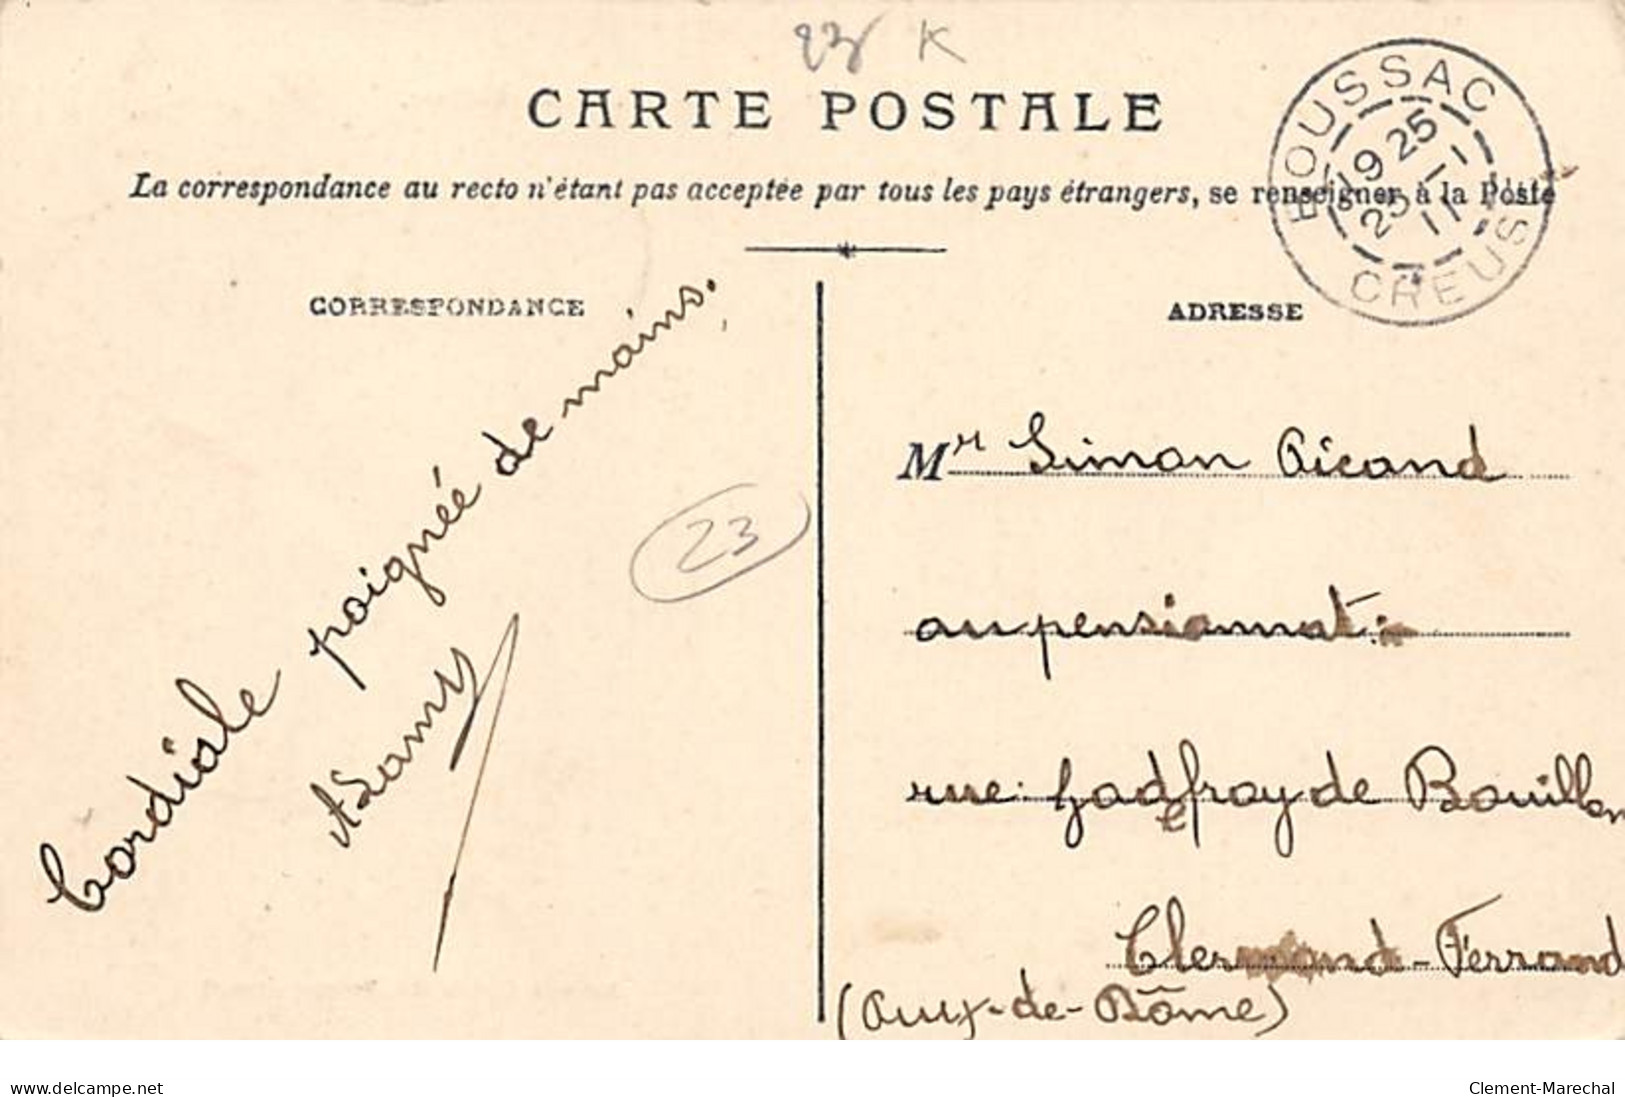 23 K
CARTE POSTALE
La correspondance au recto n'étant pas acceptée par tous les pays étrangers, se renseigner à la Poste
BOUSSAC
19 25
25 - 1
11
CREUSE
CORRESPONDANCE
Cordiale poignée de mains.
A Lamy
23
ADRESSE
Mr Simon Picand
au pensionnat
rue Godefroy de Bouillon
Clermond-Ferrand
(Puy-de-Dôme)
www.delcampe.net
Clement-Marechal